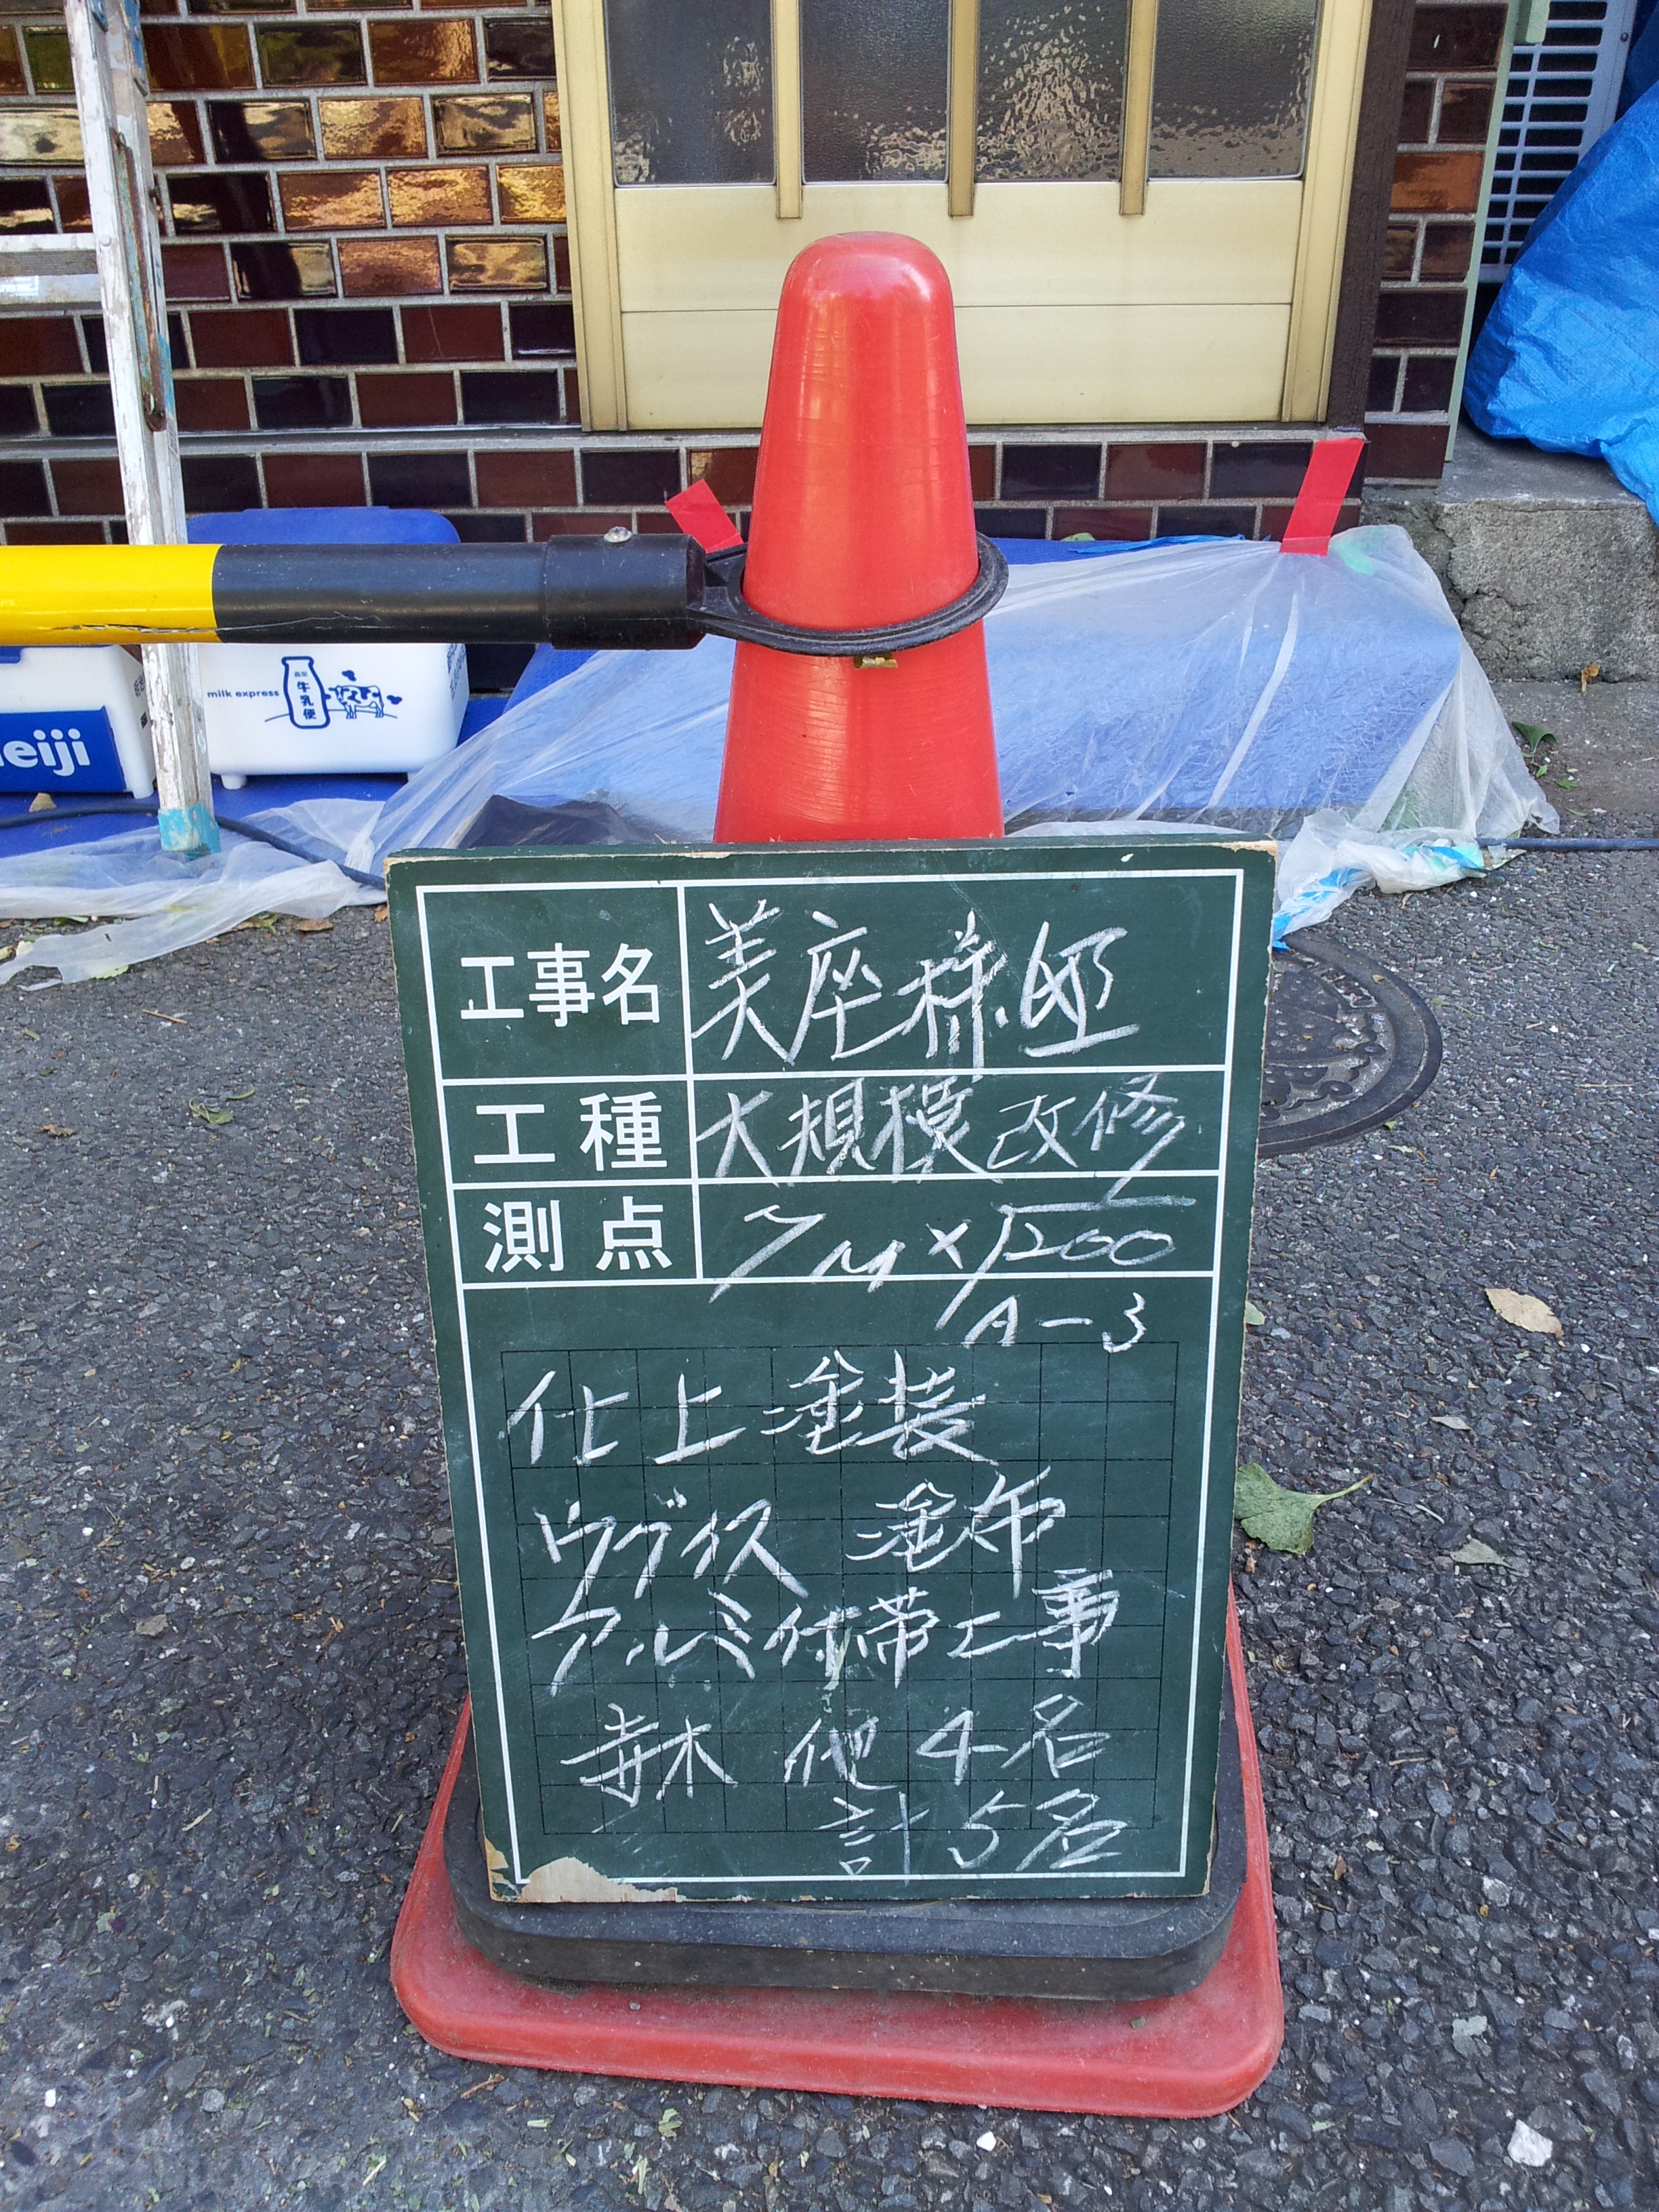 milk express
森永
牛乳便
eiji
工事名 美座様邸
工種 大規模改修
測点 7M×1200
A-3
仕上塗装
ウグイス 塗布
アルミ付帯工事
寺木 他4名
計5名